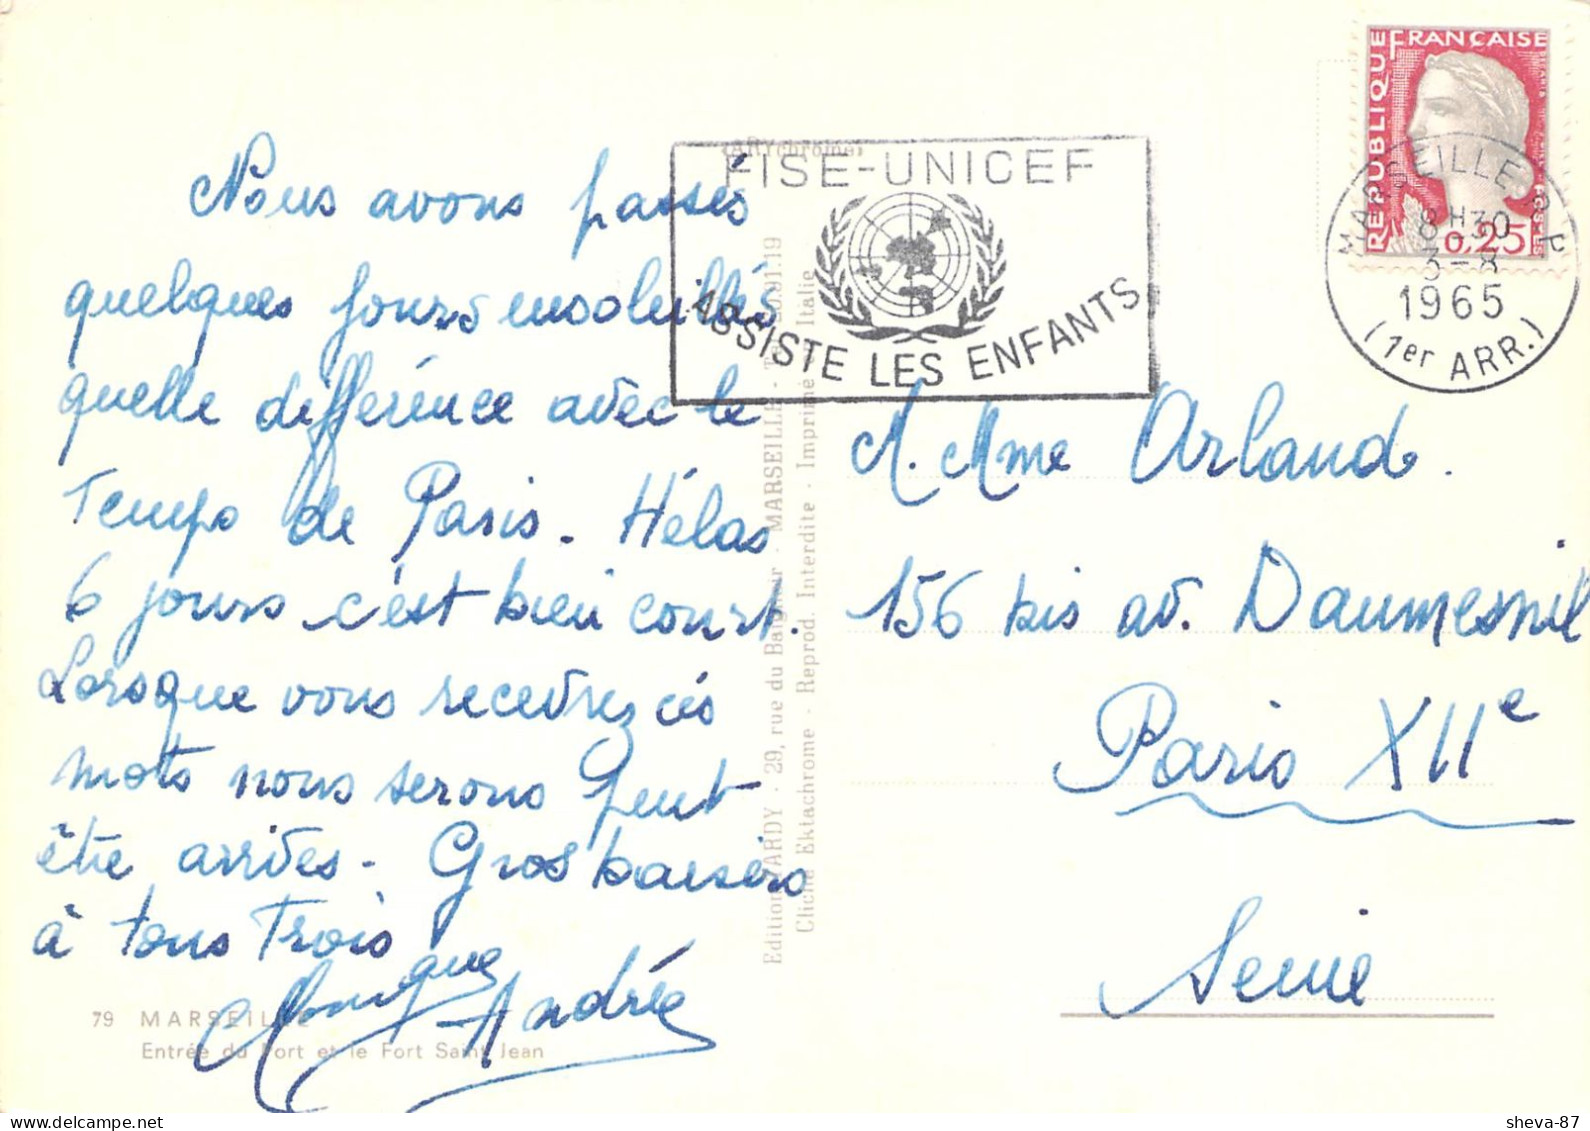 Nous avons passés
quelques jours ensoleillés
quelle différence avec le
Temps de Paris. Hélas
6 jours c'est bien court.
Lorsque vous recevrez ces
mots nous serons peut
être arrivés. Gros baisers
à tous Trois
Andrée
79 MARSEILLE
Entrée du Port et le Fort Saint Jean
(ARYchrome)
FISE-UNICEF
ASSISTE LES ENFANTS
Edition YARDY - 29, rue du Baignoir - MARSEILLE -
Cliché Ektachrome - Reprod. Interdite - Imprimé en Italie
RÉPUBLIQUE FRANÇAISE
0,25
MARSEILLE R.P.
8H30
3-8
1965
(1er ARR.)
M. Mme Arland.
156 bis av. Daumesnil
Paris XIIe
Seine
sheva-87